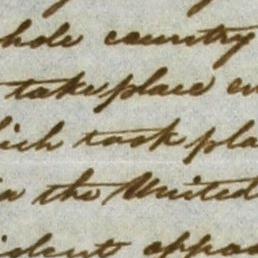 whole country
take place
which took pla
the United
ident oppo